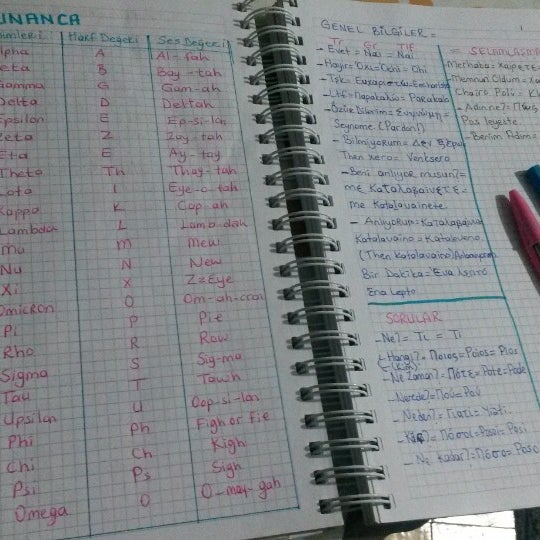 UNANCA
İsimleri Harf Değeri Ses Değeri
Alpha A Al-fah
Beta B Bay-tah
Gamma G Gam-ah
Delta D Deltah
Epsilon E Ep-si-lon
Zeta Z Zay-tah
Eta E Ay-tay
Theta Th Thay-tah
Iota I Eye-o-tah
Kappa K Cap-ah
Lambda L Lamb-dah
Mu m Mew
Nu N New
Xi X Z=Eye
Omicron O Om-ah-cron
Pi P Pie
Rho R Row
Sigma S Sig-ma
Tau T Tawh
Upsilon U Oop-si-lon
Phi Ph Figh or fie
Chi Ch Kigh
Psi Ps Sigh
Omega O O-may-gah
GENEL BİLGİLER =
- Evet = Ναι = Nai
- Hayır = Όχι = Ohi
- Özür Dilerim =
Seynome (Pardon!)
- Bilmiyorum = Δεν ξέρω
Then xero =
- Beni anlıyor musun? =
με καταλαβαίνετε =
me Katalavainete.
- Anlıyorum =
Katalavaino =
(Then Katalavaino)
Bir Dakika =
Ena Lepto
SORULAR
- Ne? = Τι = Ti
- Hangi? = Ποιος = Poios = Pios
(Kim)
- Ne Zaman? = Πότε = Pote = Pode
- Nerede? = Πού = Pou
- Neden? = Γιατί = Yiati.
= Πόσοι = Posoi = Posi
- Ne Kadar? = Πόσο = Poso
= SELAMLAŞMA
Merhaba =
Memnun Oldum =
Chairo Poli =
- Adın ne? = Πως
Pos leyeste
- Benim Adım =